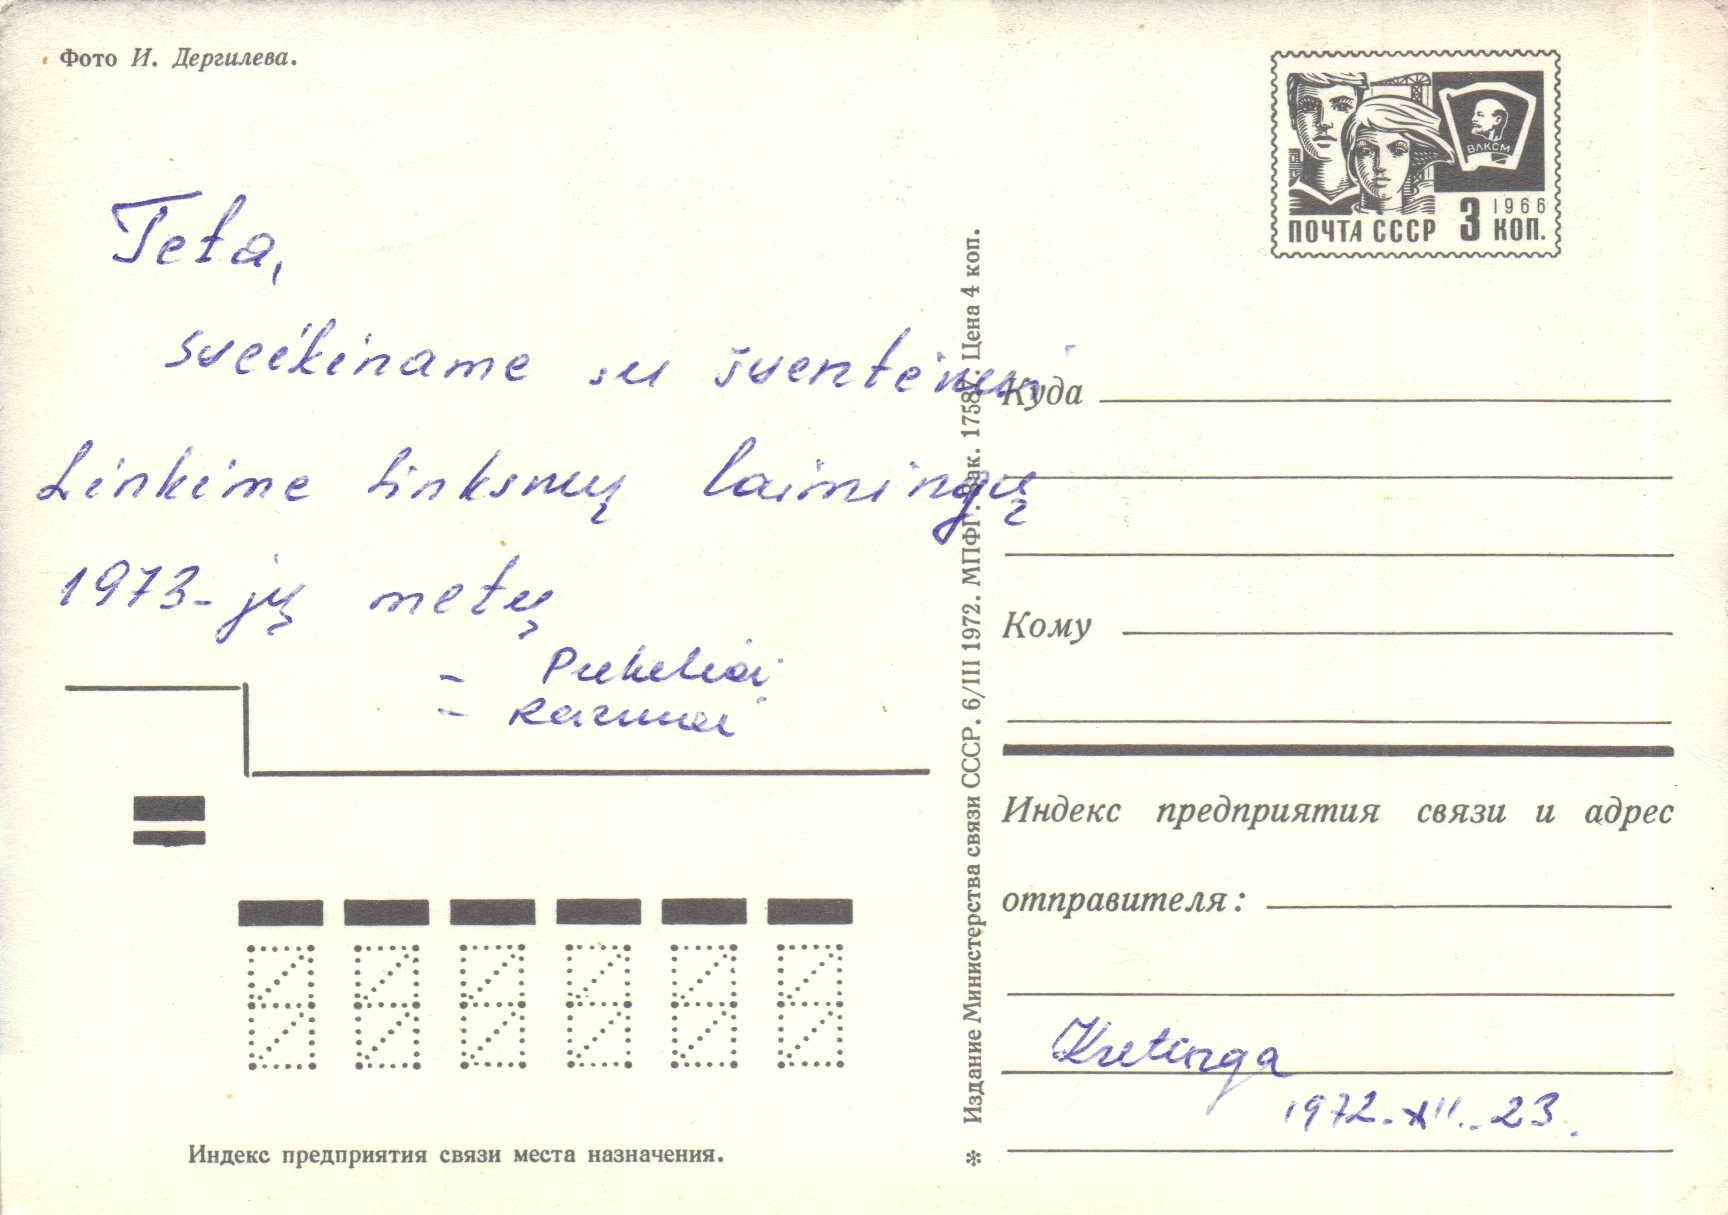 Фото И. Дергилева.
ВЛКСМ
1966
ПОЧТА СССР 3 КОП.
Teta,
sveikiname su šventėmis
Linkime linksmų laimingų
1973-jų metų
Индекс предприятия связи места назначения.
* Издание Министерства связи СССР. 6/III 1972. МПФГ. Зак. 17587. Цена 4 коп.
Куда
Кому
Индекс предприятия связи и адрес
отправителя:
Kretinga
1972-XII-23.